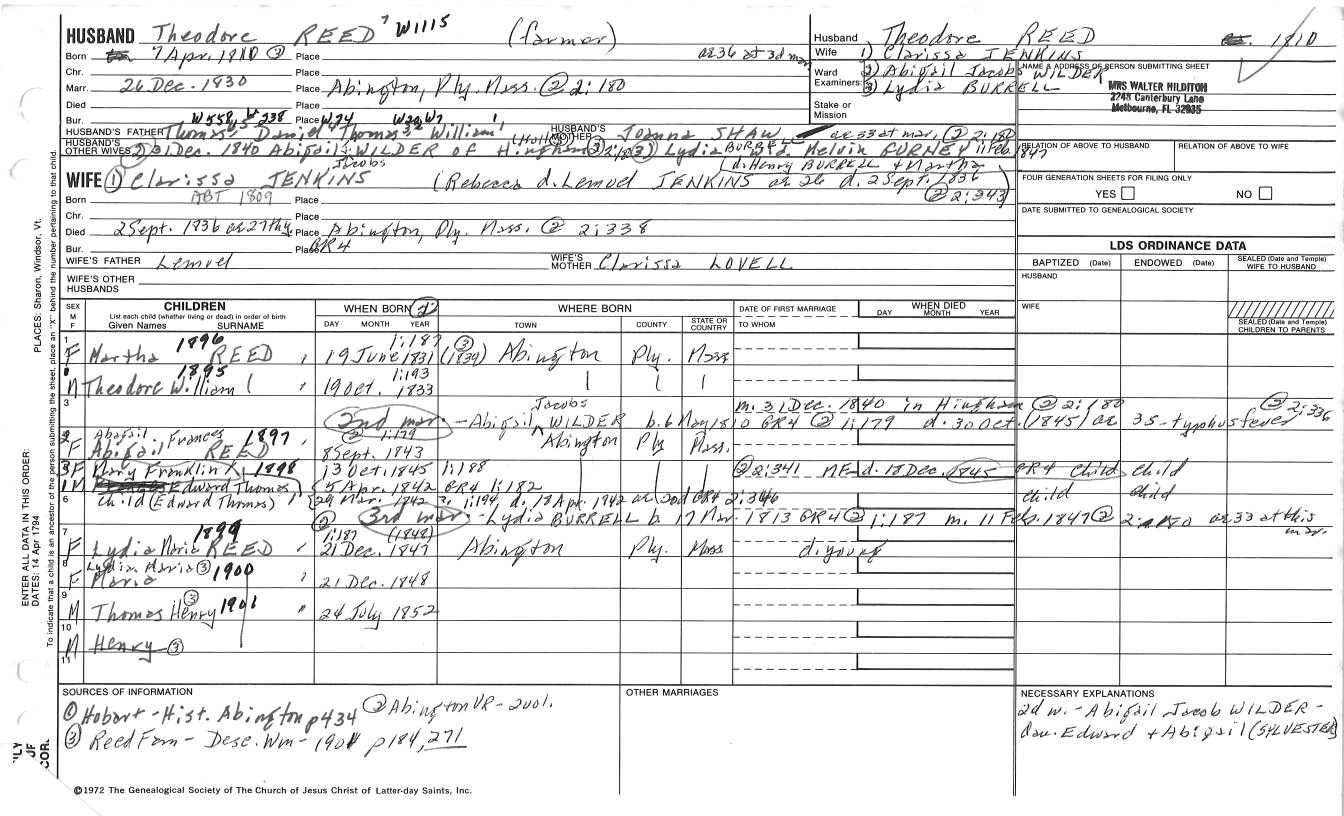 HUSBAND Theodore REED 7 W1115 (farmer)
Born 7 Apr. 1810 ③ Place ae 36 at 3d mar
Chr. Place
Marr. 26 Dec. 1830 Place Abington, Ply. Mass. ② 2:180
Died Place
Bur. W558, W238 Place W74 W7
HUSBAND'S FATHER Thomas Daniel Thomas William HUSBAND'S MOTHER Joanna SHAW ae 33 at mar. ② 2:180
HUSBAND'S OTHER WIVES ② 31 Dec. 1840 Abigail Jacobs WILDER of Hingham ③ Lydia BURRELL wid. Melvin GURNEY 11 Feb. 1847
(d. Henry BURRELL + Martha
Husband Theodore REED 1810
Wife 1) Clarissa JENKINS
Ward 2) Abigail Jacobs WILDER
Examiners: 3) Lydia BURRELL
Stake or Mission
NAME & ADDRESS OF PERSON SUBMITTING SHEET
MRS WALTER HILDITCH
2748 Canterbury Lane
Melbourne, FL 32935
RELATION OF ABOVE TO HUSBAND RELATION OF ABOVE TO WIFE
FOUR GENERATION SHEETS FOR FILING ONLY
YES NO
DATE SUBMITTED TO GENEALOGICAL SOCIETY
WIFE ① Clarissa JENKINS (Rebecca d. Lemuel JENKINS ae 26 d. 2 Sept. 1836)
② 2:343
Born ABT 1809 Place
Chr. Place
Died 2 Sept. 1836 ae 27th y. Place Abington, Ply. Mass. ② 2:338
Bur. Place GR4
WIFE'S FATHER Lemuel WIFE'S MOTHER Clarissa LOVELL
WIFE'S OTHER HUSBANDS
LDS ORDINANCE DATA
BAPTIZED (Date) ENDOWED (Date) SEALED (Date and Temple) WIFE TO HUSBAND
HUSBAND
WIFE
SEALED (Date and Temple) CHILDREN TO PARENTS
SEX M F CHILDREN List each child (whether living or dead) in order of birth Given Names SURNAME
WHEN BORN ② DAY MONTH YEAR
WHERE BORN TOWN COUNTY STATE OR COUNTRY
DATE OF FIRST MARRIAGE TO WHOM
WHEN DIED DAY MONTH YEAR
1 F Martha 1896 REED 1:187 19 June 1831 ③ (1839) Abington Ply. Mass
M Theodore William 1895 " 1:193 19 Oct. 1833
3 2nd mar. - Abigail Jacobs WILDER b. 6 May 1810 GR4 ② 1:179 m. 31 Dec. 1840 in Hingham ② 2:180 d. 30 Oct. (1845) ae 35 - typhus fever ② 2:336
2 F Abigail Frances 1897 Abigail REED ② 1:179 8 Sept. 1843 Abington Ply Mass.
3 F Mary Franklin 1898 13 Oct. 1845 1:188 ② 2:341 d. 18 Dec. 1845 GR4 child child
1 M Edward Thomas 5 Apr. 1842 GR4 1:182
6 child (Edward Thomas) 29 Mar. 1842 1:194 d. 18 Apr. 1842 ae 20d GR4 2:346 child child
3rd mar. - Lydia BURRELL b. 17 Mar. 1813 GR4 ② 1:187 m. 11 Feb. 1847 ② ae 33 at this mar.
7 F Lydia Maria REED 1899 ② 1:187 (1848) 21 Dec. 1847 Abington Ply. Mass d. young
8 F Lydia Maria ③ 1900 Maria " 21 Dec. 1848
9 M Thomas Henry ③ 1901 " 24 July 1852
10 M Henry ③
11
SOURCES OF INFORMATION
① Hobart - Hist. Abington p434 ② Abington VR - 2vol.
③ Reed Fam - Desc. Wm - 1901 p184, 271
OTHER MARRIAGES
NECESSARY EXPLANATIONS
2d w. - Abigail Jacob WILDER -
dau. Edward + Abigail (SYLVESTER)
©1972 The Genealogical Society of The Church of Jesus Christ of Latter-day Saints, Inc.
ENTER ALL DATA IN THIS ORDER:
DATES: 14 Apr 1794
PLACES: Sharon, Windsor, Vt.
To indicate that a child is an ancestor of the person submitting the sheet, place an "X" behind the number pertaining to that child.